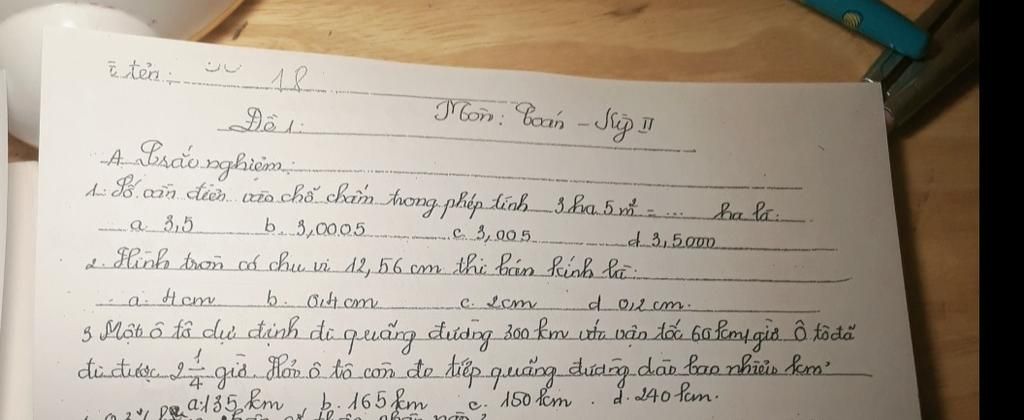 tên: 18
Môn: Toán - Kỳ II
Đề 1:
A. Trắc nghiệm:
1. Số cần điền vào chỗ chấm trong phép tính 3 ha 5 m² = ... ha là:
a. 3,5 b. 3,0005 c. 3,005 d. 3,5000
2. Hình tròn có chu vi 12,56 cm thì bán kính là:
a. 4cm b. 0,4cm c. 2cm d. 0,2cm.
3. Một ô tô dự định đi quãng đường 300 km với vận tốc 60 km/giờ. Ô tô đã
đi được 2 1/4 giờ. Hỏi ô tô còn đi tiếp quãng đường dài bao nhiêu km?
a. 135 km b. 165 km c. 150 km. d. 240 km.